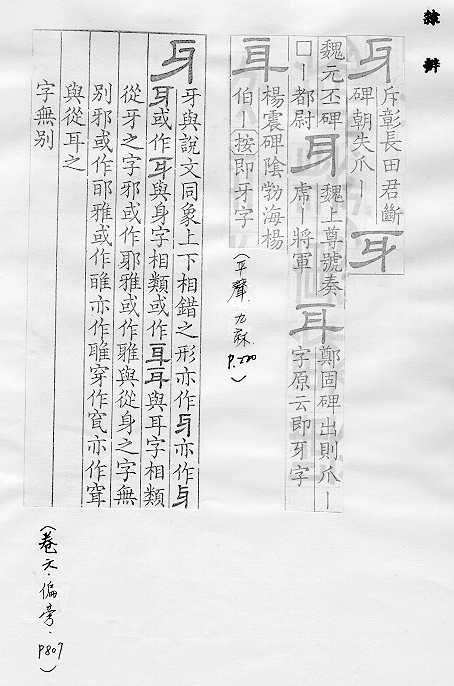 隸辨
牙斥彰長田君斷
碑朝失爪丨牙
魏元丕碑牙魏上尊號奏牙鄭固碑出則爪丨
□丨都尉虎丨將軍字原云即牙字
牙楊震碑陰勃海楊
伯丨按即牙字
(平聲.九麻.P.200)
牙牙與說文同象上下相錯之形亦作牙亦作牙
牙或作牙與身字相類或作耳耳與耳字相類
從牙之字邪或作耶雅或作雅與從身之字無
別邪或作耶雅或作睢亦作雅穿作穿亦作穿
與從耳之
字無别
(卷六.偏旁.P807)